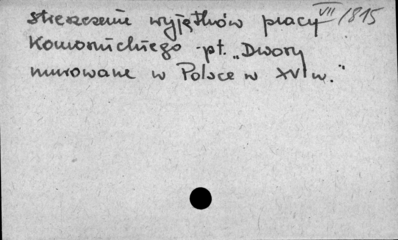 streszczenie wyjątków pracy VII/815
Komornickiego pt. „Dwory
murowane w Polsce w XVI w."